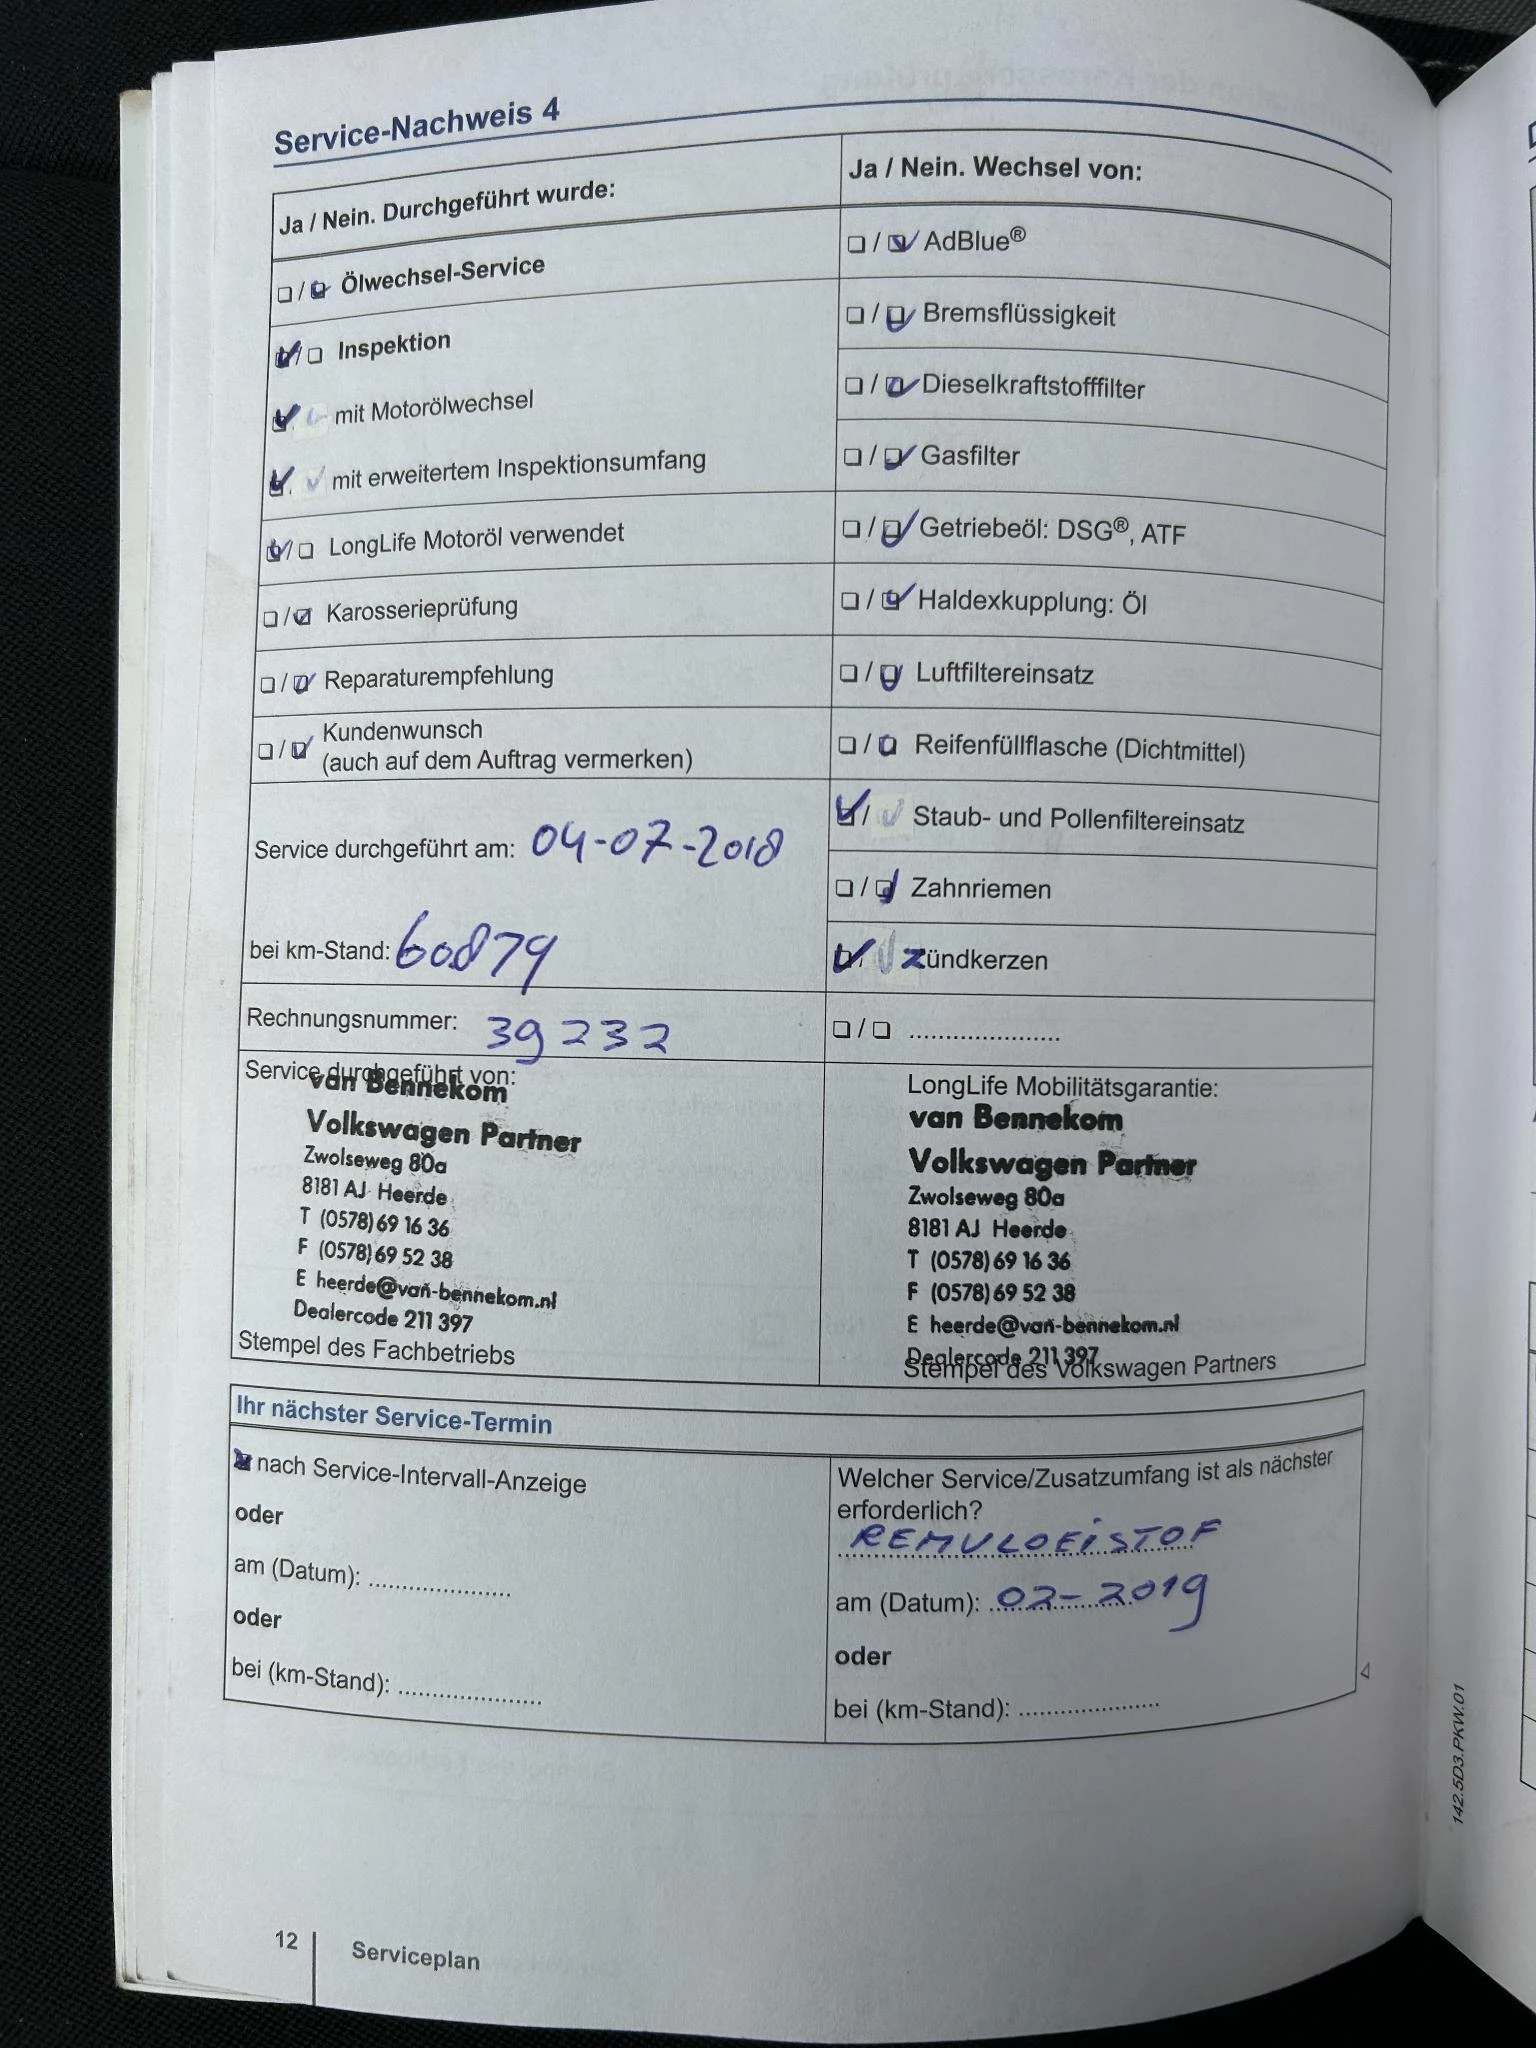 Service-Nachweis 4
Ja / Nein. Durchgeführt wurde:
❏ / ❏ Ölwechsel-Service
❏ / ❏ Inspektion
mit Motorölwechsel
mit erweitertem Inspektionsumfang
❏ / ❏ LongLife Motoröl verwendet
❏ / ❏ Karosserieprüfung
❏ / ❏ Reparaturempfehlung
❏ / ❏ Kundenwunsch
(auch auf dem Auftrag vermerken)
Service durchgeführt am: 04-07-2018
bei km-Stand: 60879
Rechnungsnummer: 39232
Service durchgeführt von:
van Bennekom
Volkswagen Partner
Zwolseweg 80a
8181 AJ Heerde
T (0578) 69 16 36
F (0578) 69 52 38
E heerde@van-bennekom.nl
Dealercode 211 397
Stempel des Fachbetriebs
Ja / Nein. Wechsel von:
❏ / ❏ AdBlue®
❏ / ❏ Bremsflüssigkeit
❏ / ❏ Dieselkraftstofffilter
❏ / ❏ Gasfilter
❏ / ❏ Getriebeöl: DSG®, ATF
❏ / ❏ Haldexkupplung: Öl
❏ / ❏ Luftfiltereinsatz
❏ / ❏ Reifenfüllflasche (Dichtmittel)
❏ / Staub- und Pollenfiltereinsatz
❏ / ❏ Zahnriemen
❏ / Zündkerzen
❏ / ❏ .....................
LongLife Mobilitätsgarantie:
van Bennekom
Volkswagen Partner
Zwolseweg 80a
8181 AJ Heerde
T (0578) 69 16 36
F (0578) 69 52 38
E heerde@van-bennekom.nl
Dealercode 211 397
Stempel des Volkswagen Partners
Ihr nächster Service-Termin
nach Service-Intervall-Anzeige
oder
am (Datum): ....................
oder
bei (km-Stand): ....................
Welcher Service/Zusatzumfang ist als nächster
erforderlich?
REMVLOEISTOF
am (Datum): 02-2019
oder
bei (km-Stand): ....................
142.5D3.PKW.01
12 Serviceplan